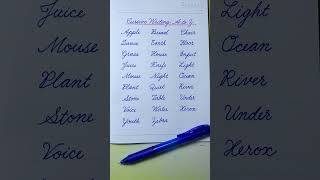 Juice
Mouse
Plant
Stone
Voice
Cursive Writing A to Z
Apple Bread Chair
Dance Earth Floor
Grass House Input
Juice Knife Light
Mouse Night Ocean
Plant Quiet River
Stone Table Under
Voice Water Xerox
Youth Zebra
Light
Ocean
River
Under
Xerox